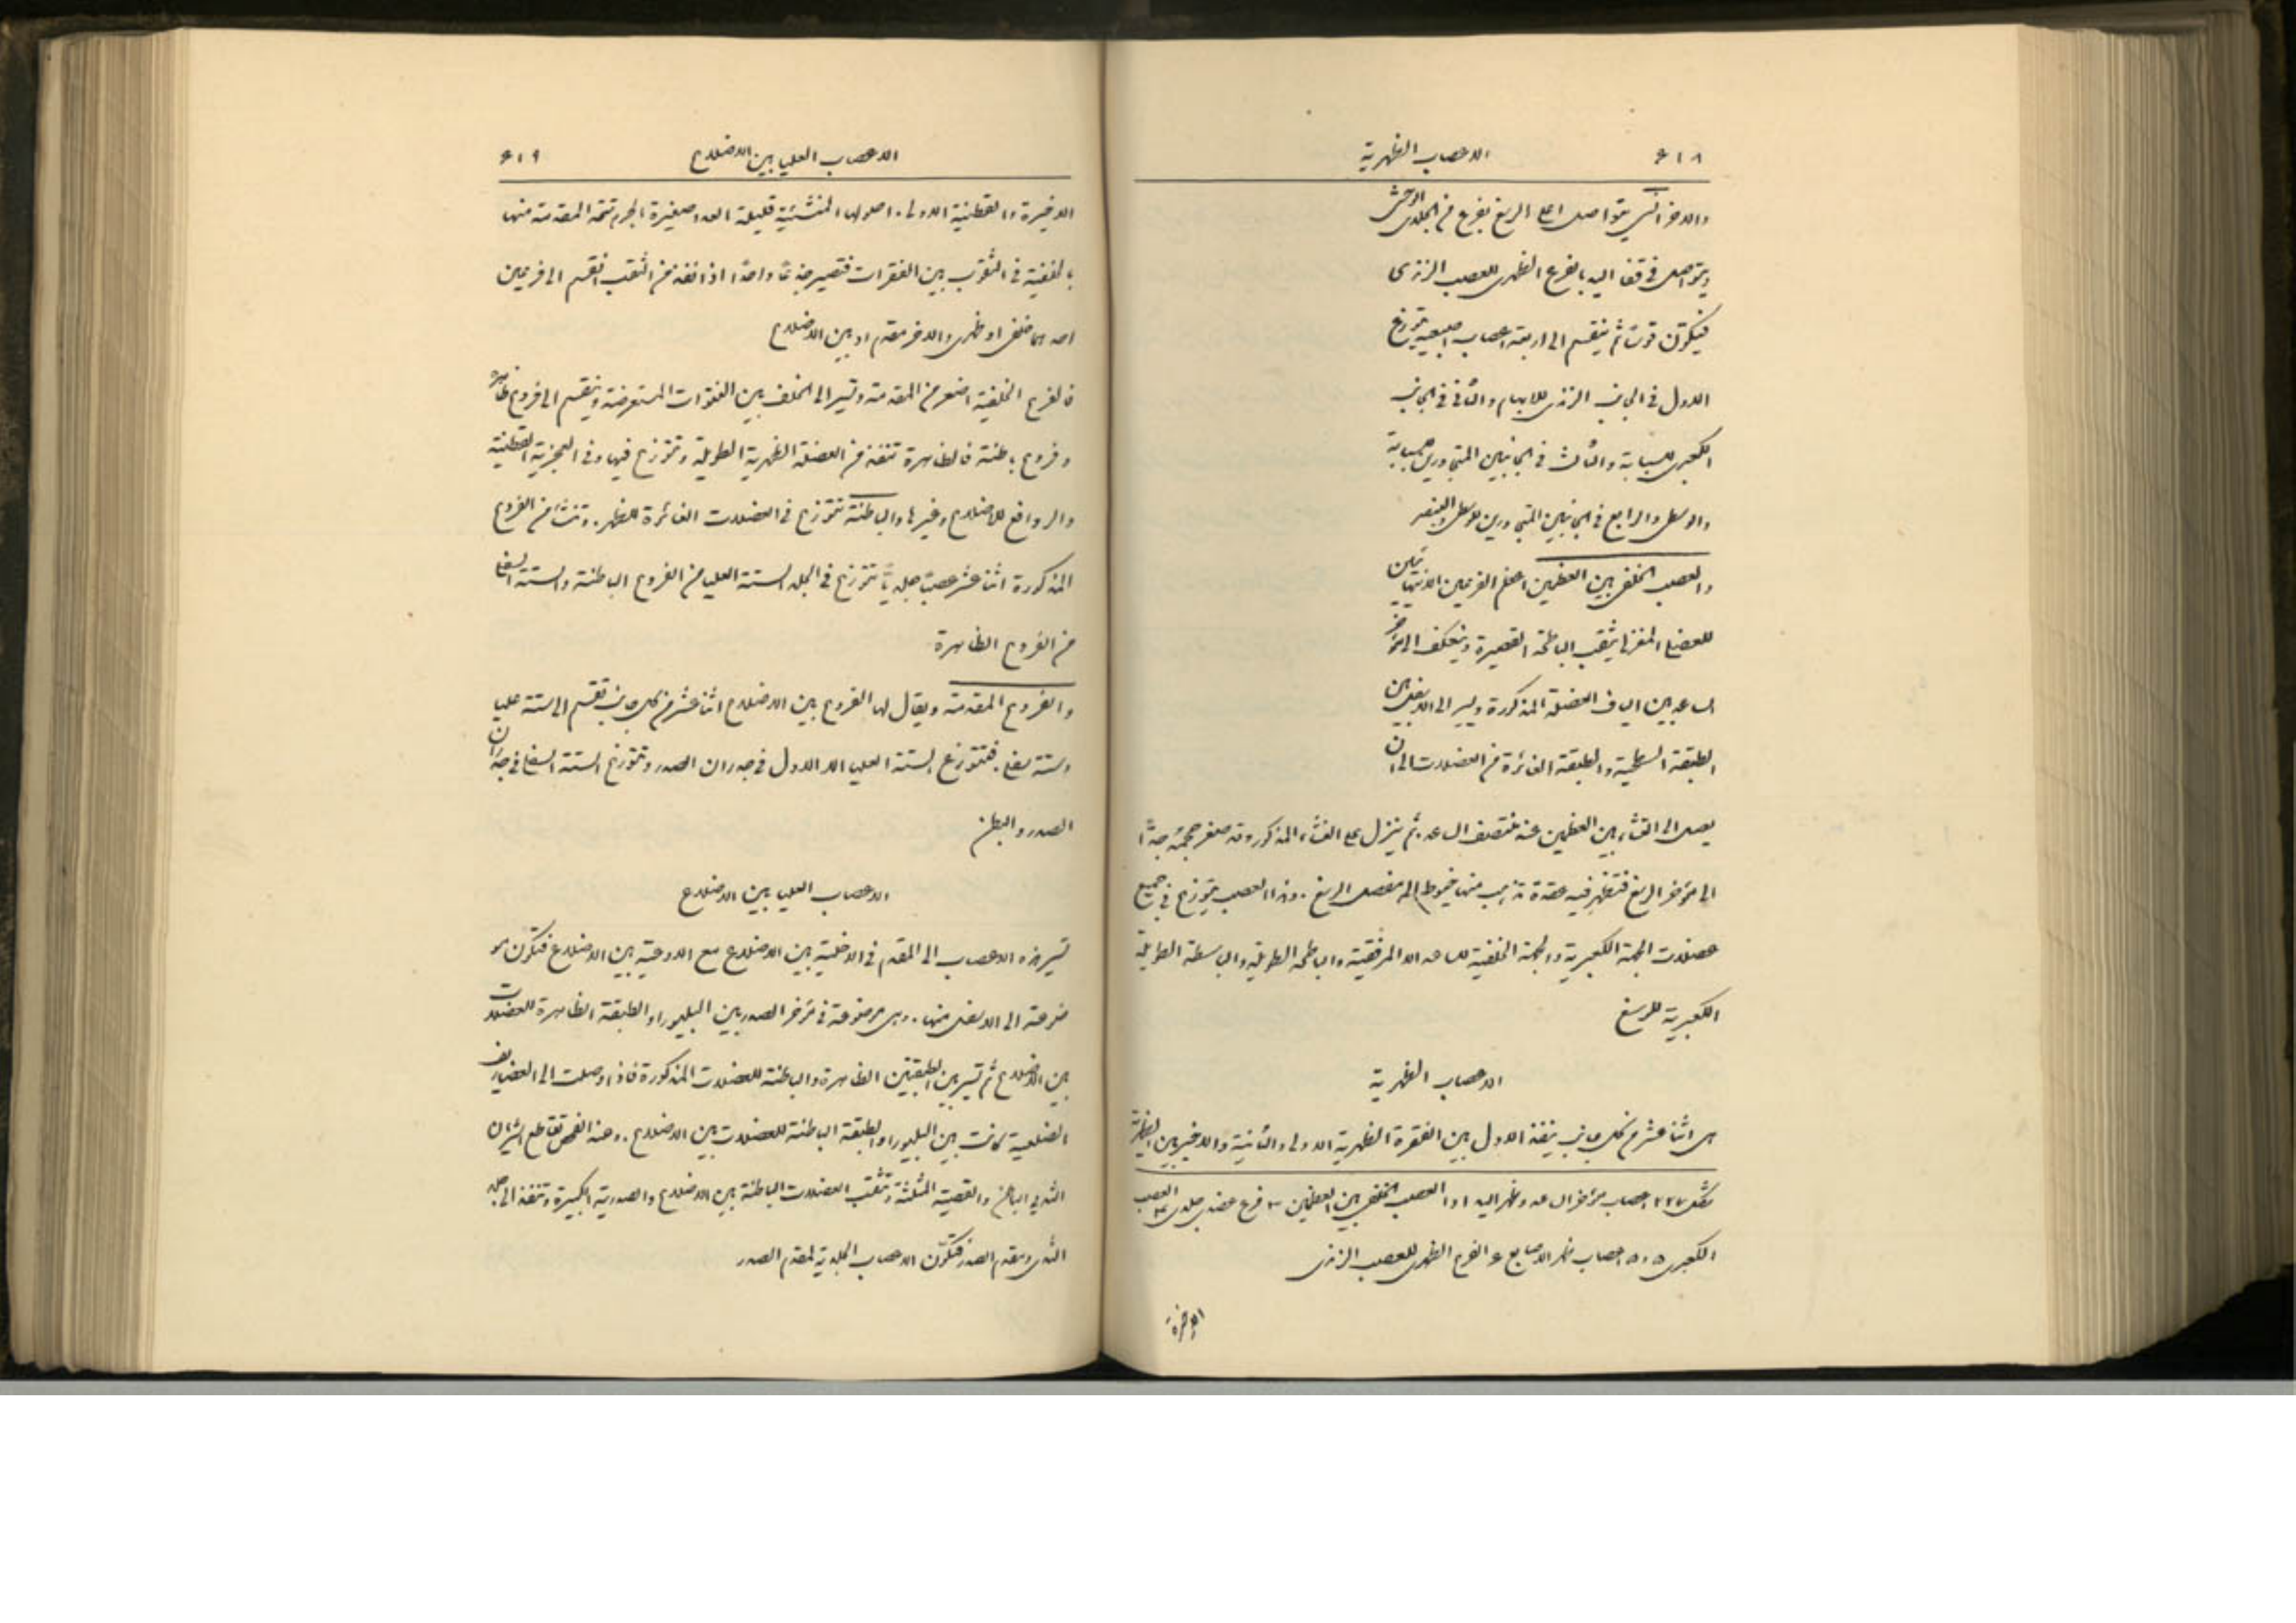 ٤١٨
الاعصاب الظهرية
والاخر انسي يتواصل اعلى الرسغ بفرع من الجلدي الوحشي
ويتواصل في قفا اليد بالفرع الظهري للعصب الزندي
فيكوّن قوسًا ثم ينقسم الى اربعة اعصاب اصبعية تتوزع
الاول في الجانب الزندي للابهام والثاني في الجانب
الكعبري للسبابة والثالث في الجانبين المتجاورين للسبابة
والوسطى والرابع في الجانبين المتجاورين للوسطى والبنصر
والعصب الخلفي بين العظمين اعظم الفرعين الانتهائيين
للعضلي المغزلي يثقب الباطحة القصيرة وينعكف الى مؤخر
الساعد بين الياف العضلة المذكورة ويسير الى الاسفل بين
الطبقة السطحية والطبقة الغائرة من العضلات الى ان
يصل الى الغشاء بين العظمين عند منتصف الساعد. ثم ينزل على الغشاء المذكور وقد صغر حجمه جدًّا
الى مؤخر الرسغ فتظهر فيه عقدة تذهب منها خيوط الى مفصل الرسغ. وهذا العصب يتوزع في جميع
عضلات الجهة الكعبرية والجهة الخلفية للساعد الا المرفقية والباطحة الطويلة والباسطة الطويلة
الكعبرية للرسغ
الاعصاب الظهرية
هي اثنا عشر من كل جانب ينفذ الاول بين الفقرة الظهرية الاولى والثانية والاخير بين الظهرية
شكل ٢٢٧ اعصاب مؤخر الساعد وظهر اليد ١ و١ العصب الخلفي بين العظمين ٢ فرع عضلي جلدي ٣ العصب
الكعبري ٥ و٥ اعصاب ظهر الاصابع ٤ الفرع الظهري للعصب الزندي
الاخيرة
الاعصاب العليا بين الاضلاع
٤١٩
الاخيرة والقطنية الاولى. اصولها المنشئية قليلة العدد صغيرة الجرم تتحد المقدمة منها
بالخلفية في الثقوب بين الفقرات فتصير جذعًا واحدًا اذا نفذ من الثقب انقسم الى فرعين
احدهما خلفي او ظهري والاخر مقدم او بين الاضلاع
فالفروع الخلفية اصغر من المقدمة وتسير الى الخلف بين النتوات المستعرضة وتنقسم الى فروع ظاهرة
وفروع باطنة فالظاهرة تنفذ من العضلة الظهرية الطويلة وتتوزع فيها وفي العجزية القطنية
والروافع للاضلاع وغيرها والباطنة تتوزع في العضلات الغائرة للظهر. وتنشأ من الفروع
المذكورة اثنا عشر عصبًا جلديًّا تتوزع في الجلد الستة العليا من الفروع الباطنة والستة السفلى
من الفروع الظاهرة
والفروع المقدمة ويقال لها الفروع بين الاضلاع اثنا عشر من كل جانب تقسم الى ستة عليا
وستة سفلى. فتتوزع الستة العليا الا الاول في جدران الصدر وتتوزع الستة السفلى في جدران
الصدر والبطن
الاعصاب العليا بين الاضلاع
تسير هذه الاعصاب الى المقدم في الاخلية بين الاضلاع مع الاوعية بين الاضلاع فتكون مو
ضوعة الى الاسفل منها. وهي موضوعة في مؤخر الصدر بين البليورا والطبقة الظاهرة للعضلات
بين الاضلاع ثم تسير بين الطبقتين الظاهرة والباطنة للعضلات المذكورة فاذا وصلت الى الغضاريف
الضلعية كانت بين البليورا والطبقة الباطنة للعضلات بين الاضلاع. وعند القص تقاطع الشريان
الثديي الباطن والقصية المثلثة وتثقب العضلات الباطنة بين الاضلاع والصدرية الكبيرة وتنفذ الى جلد
الثدي ومقدم الصدر فتكوّن الاعصاب الجلدية لمقدم الصدر